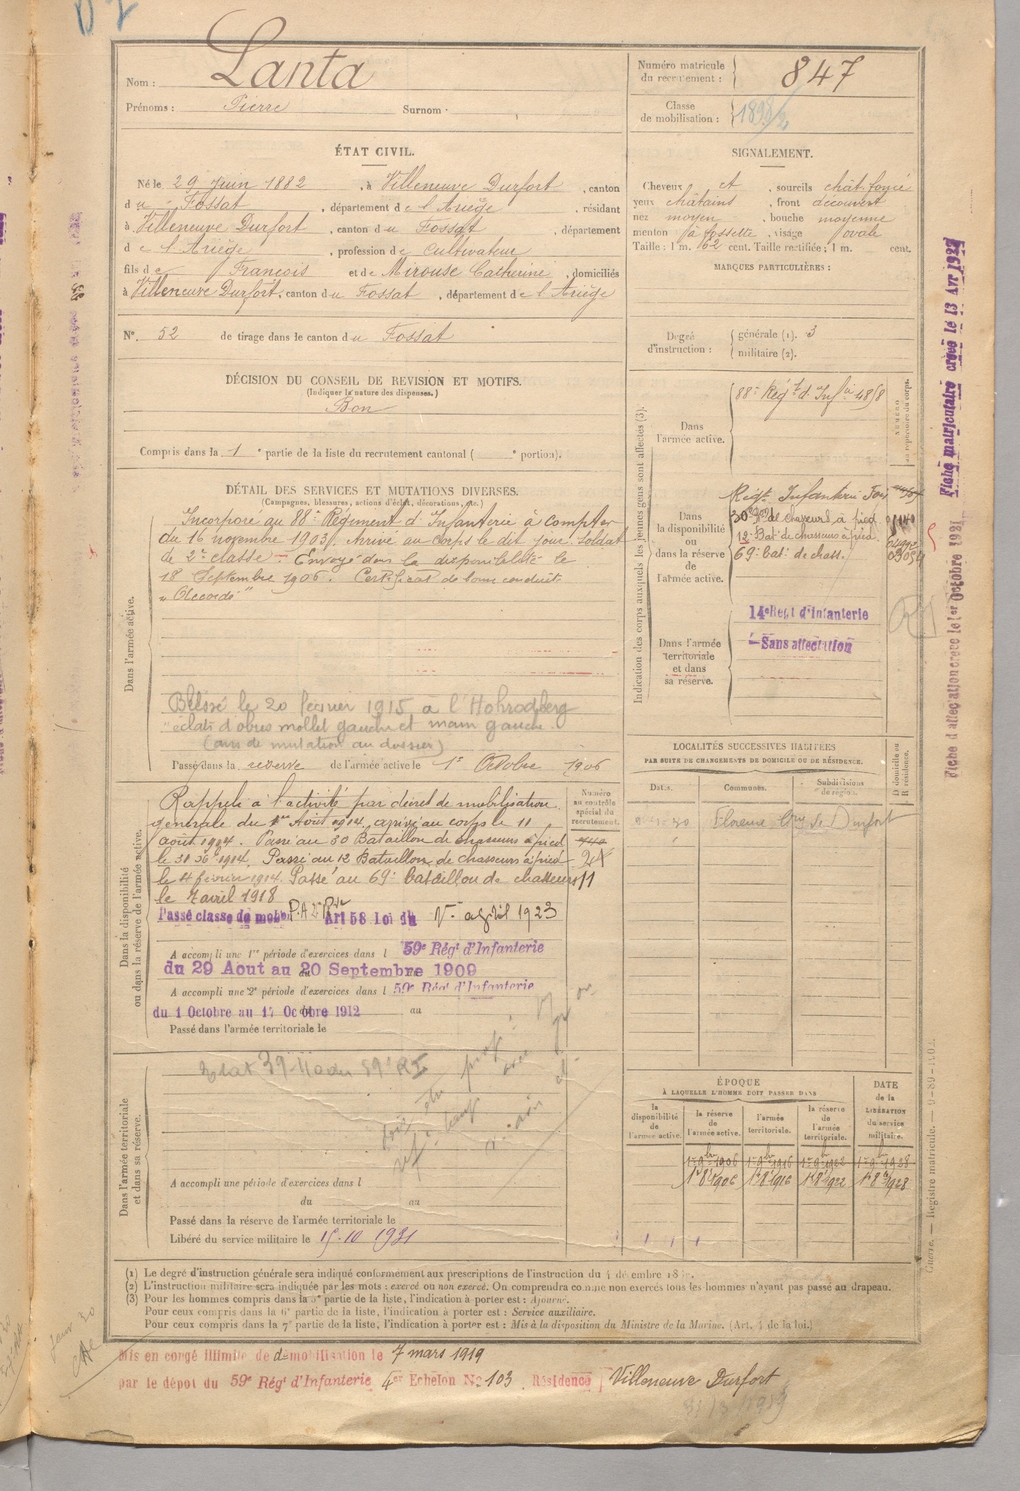 Nom : Lanta
Prénoms : Pierre Surnom :
Numéro matricule du recrutement : 847
Classe de mobilisation :
ÉTAT CIVIL.
Né le 29 Juin 1882, à Villeneuve Durfort, canton
du Fossat, département de l'Ariège, résidant
à Villeneuve Durfort, canton du Fossat, département
de l'Ariège, profession de Cultivateur
fils de François et de Mirouse Catherine, domiciliés
à Villeneuve Durfort, canton du Fossat, département de l'Ariège
N° 52 de tirage dans le canton du Fossat
SIGNALEMENT.
Cheveux et, sourcils chât foncé
yeux châtains, front découvert
nez moyen, bouche moyenne
menton à fossette, visage ovale
Taille : 1 m. 62 cent. Taille rectifiée : 1 m. cent.
MARQUES PARTICULIÈRES :
Degré d'instruction : générale (1). 3
militaire (2).
DÉCISION DU CONSEIL DE REVISION ET MOTIFS.
(Indiquer la nature des dispenses.)
Bon
Compris dans la 1e partie de la liste du recrutement cantonal ( e portion).
DÉTAIL DES SERVICES ET MUTATIONS DIVERSES.
(Campagnes, blessures, actions d'éclat, décorations, etc.)
Dans l'armée active.
Incorporé au 88e Régiment d'Infanterie à compter
du 16 novembre 1903. Arrivé au Corps le dit jour. Soldat
de 2e classe. Envoyé dans la disponibilité le
18 Septembre 1906. Certificat de bonne conduite
"Accordé"
Blessé le 20 février 1915 à l'Hohrodberg
éclats d'obus mollet gauche et main gauche
(avis de mutation au dossier)
Passé dans la réserve de l'armée active le 1er Octobre 1906
Indication des corps auxquels les jeunes gens sont affectés (3).
NUMÉRO au répertoire du corps.
Dans l'armée active.
88e Régt d'Infie 4858
Dans la disponibilité ou dans la réserve de l'armée active.
Régt Infanterie Foix
30e Bat de chasseurs à pied
12e Bat de chasseurs à pied
69e bat. de chass.
Dans l'armée territoriale et dans sa réserve.
14e Regt d'Infanterie
Sans affectation
LOCALITÉS SUCCESSIVES HABITÉES
PAR SUITE DE CHANGEMENTS DE DOMICILE OU DE RÉSIDENCE.
Dates. Communes. Subdivisions de région. D domicile ou R résidence.
Durfort
Dans la disponibilité ou dans la réserve de l'armée active.
Numéro au contrôle spécial du recrutement.
Rappelé à l'activité par décret de mobilisation
générale du 1er Août 1914, arrivé au corps le 11
août 1914. Passé au 30 Bataillon de chasseurs à pied
le 30 Xbre 1914. Passé au 12 Bataillon de chasseurs à pied
le 4 février 1914. Passé au 69e bataillon de chasseurs
le 7 avril 1918
Passé classe de mob Art 58 loi du 1923
A accompli une 1re période d'exercices dans l 59e Régt d'Infanterie
du 29 Aout au 20 Septembre 1909
A accompli une 2e période d'exercices dans l 59e Régt d'Infanterie
du 1 Octobre au 17 Octobre 1912 au
Passé dans l'armée territoriale le
Dans l'armée territoriale et dans sa réserve.
A accompli une période d'exercices dans l
du au
Passé dans la réserve de l'armée territoriale le
Libéré du service militaire le 15.10 1931
ÉPOQUE
À LAQUELLE L'HOMME DOIT PASSER DANS
la disponibilité de l'armée active.
la réserve de l'armée active.
l'armée territoriale.
la réserve de l'armée territoriale.
DATE de la LIBÉRATION du service militaire.
1er 9bre 1906 1er 9bre 1916 1er 9bre 1922 1er 9bre 1928
1er 8bre 1906 1er 8bre 1916 1er 8bre 1922 1er 8bre 1928
(1) Le degré d'instruction générale sera indiqué conformément aux prescriptions de l'instruction du 4 décembre 18
(2) L'instruction militaire sera indiquée par les mots : exercé ou non exercé. On comprendra comme non exercés tous les hommes n'ayant pas passé au drapeau.
(3) Pour les hommes compris dans la 5e partie de la liste, l'indication à porter est : Ajourné.
Pour ceux compris dans la 6e partie de la liste, l'indication à porter est : Service auxiliaire.
Pour ceux compris dans la 7e partie de la liste, l'indication à porter est : Mis à la disposition du Ministre de la Marine. (Art. 4 de la loi.)
Mis en congé illimité de démobilisation le 7 mars 1919
par le dépôt du 59e Régt d'Infanterie 4er Echelon No 103 Résidence Villeneuve Durfort
Fiche matriculaire créée le 13 Avr 1927
Fiche d'affectation créée le 1er Octobre 1921